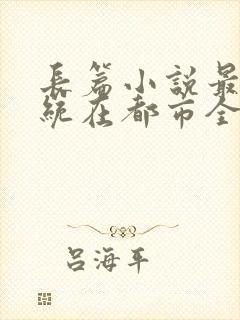 長篇小說最
統在都市全
呂海平